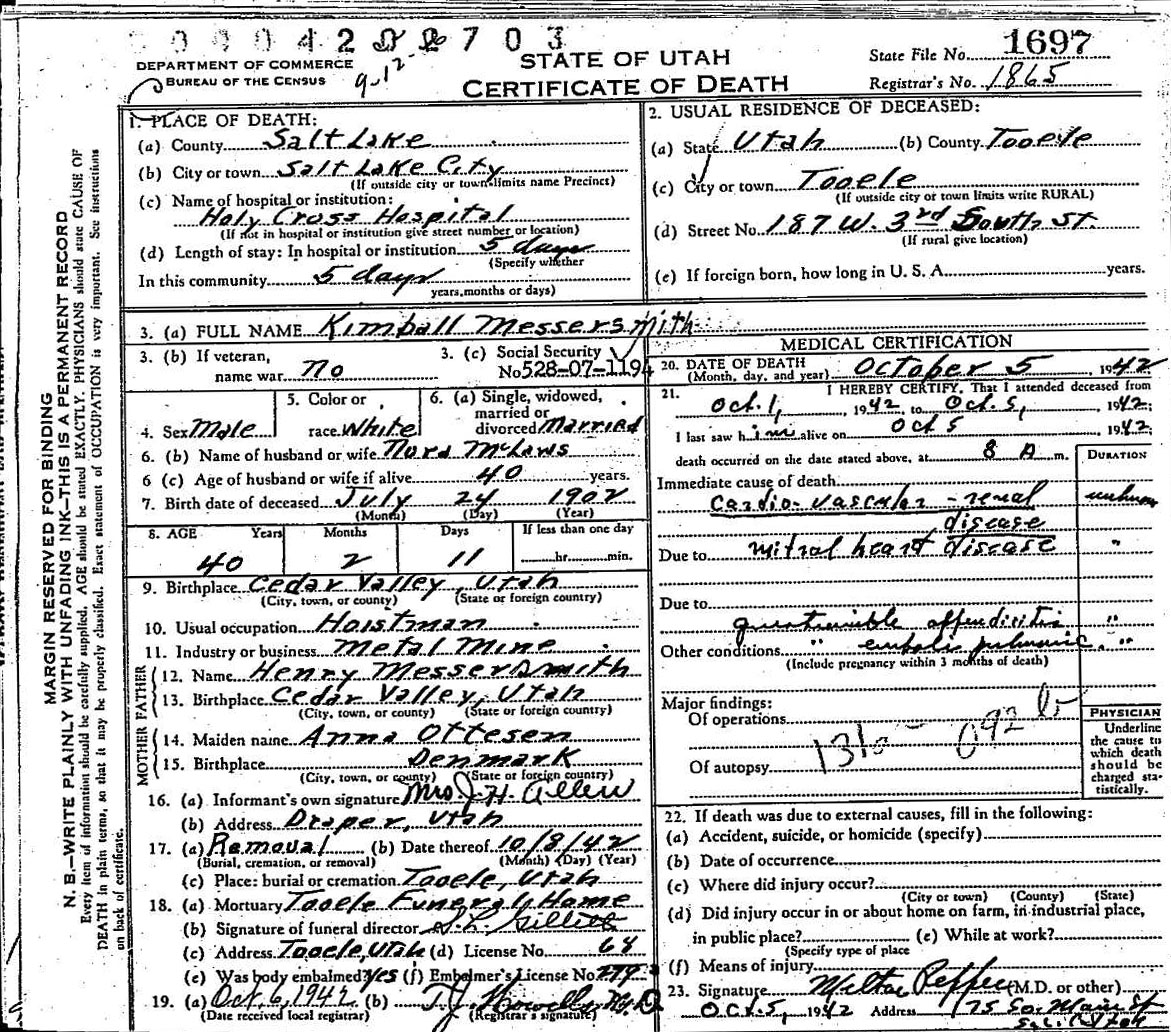 0 0 0 4 2 7 0 3
DEPARTMENT OF COMMERCE
BUREAU OF THE CENSUS
9-12-
STATE OF UTAH
CERTIFICATE OF DEATH
State File No. 1697
Registrar's No. 1865
MARGIN RESERVED FOR BINDING
N. B.—WRITE PLAINLY WITH UNFADING INK—THIS IS A PERMANENT RECORD
Every item of information should be carefully supplied. AGE should be stated EXACTLY. PHYSICIANS should state CAUSE OF
DEATH in plain terms, so that it may be properly classified. Exact statement of OCCUPATION is very important. See instructions
on back of certificate.
1. PLACE OF DEATH:
(a) County Salt Lake
(b) City or town Salt Lake City
(If outside city or town limits name Precinct)
(c) Name of hospital or institution:
Holy Cross Hospital
(If not in hospital or institution give street number or location)
(d) Length of stay: In hospital or institution 5 days
(Specify whether
In this community 5 days
years, months or days)
2. USUAL RESIDENCE OF DECEASED:
(a) State Utah (b) County Tooele
(c) City or town Tooele
(If outside city or town limits write RURAL)
(d) Street No. 187 W. 3rd South St.
(If rural give location)
(e) If foreign born, how long in U. S. A. years.
3. (a) FULL NAME Kimball Messersmith
3. (b) If veteran,
name war No
3. (c) Social Security
No. 528-07-1194
4. Sex Male
5. Color or
race White
6. (a) Single, widowed,
married or
divorced Married
6. (b) Name of husband or wife Nora McLaws
6 (c) Age of husband or wife if alive 40 years.
7. Birth date of deceased July 24 1902
(Month) (Day) (Year)
8. AGE Years Months Days If less than one day
40 2 11 hr. min.
9. Birthplace Cedar Valley, Utah
(City, town, or county) (State or foreign country)
10. Usual occupation Hoistman
11. Industry or business Metal Mine
MOTHER FATHER
12. Name Henry Messersmith
13. Birthplace Cedar Valley, Utah
(City, town, or county) (State or foreign country)
14. Maiden name Anna Ottesen
15. Birthplace Denmark
(City, town, or county) (State or foreign country)
16. (a) Informant's own signature Mrs. J. H. Allen
(b) Address Draper, Utah
17. (a) Removal (b) Date thereof 10/8/42
(Burial, cremation, or removal) (Month) (Day) (Year)
(c) Place: burial or cremation Tooele, Utah
18. (a) Mortuary Tooele Funeral Home
(b) Signature of funeral director
(c) Address Tooele, Utah (d) License No. 68
(e) Was body embalmed? Yes (f) Embalmer's License No. 279
19. (a) Oct. 6, 1942 (b) T. J. Howells M.D.
(Date received local registrar) (Registrar's signature)
MEDICAL CERTIFICATION
20. DATE OF DEATH October 5, 1942
(Month, day, and year)
21. I HEREBY CERTIFY, That I attended deceased from
Oct. 1, 1942, to Oct. 5, 1942;
I last saw him alive on Oct 5, 1942;
death occurred on the date stated above, at 8 A m.
DURATION
Immediate cause of death
Cardio-vascular-renal unknown
disease
Due to mitral heart disease "
Due to
questionable appendicitis "
Other conditions " emboli pulmonic. "
(Include pregnancy within 3 months of death)
Major findings:
Of operations
Of autopsy
131a - 092 b
PHYSICIAN
Underline
the cause to
which death
should be
charged sta-
tistically.
22. If death was due to external causes, fill in the following:
(a) Accident, suicide, or homicide (specify)
(b) Date of occurrence
(c) Where did injury occur?
(City or town) (County) (State)
(d) Did injury occur in or about home on farm, in industrial place,
in public place? (e) While at work?
(Specify type of place
(f) Means of injury
23. Signature Milton Pepper (M.D. or other)
Oct 5, 1942 Address 75 So. Main St